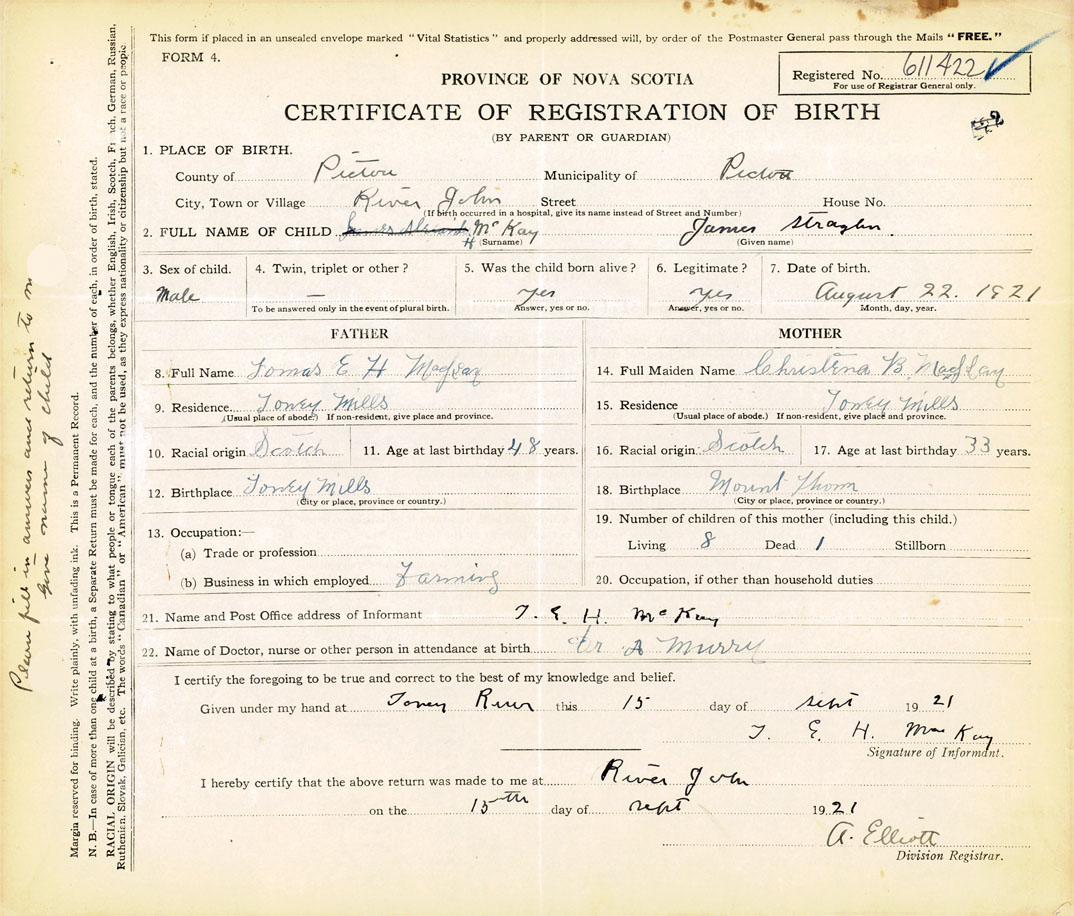 This form if placed in an unsealed envelope marked "Vital Statistics" and properly addressed will, by order of the Postmaster General pass through the Mails "FREE."
FORM 4.
Registered No. 611422
For use of Registrar General only.
PROVINCE OF NOVA SCOTIA
CERTIFICATE OF REGISTRATION OF BIRTH
(BY PARENT OR GUARDIAN)
1. PLACE OF BIRTH.
County of Pictou Municipality of Pictou
City, Town or Village River John Street House No.
(If birth occurred in a hospital, give its name instead of Street and Number)
2. FULL NAME OF CHILD McKay James
(Surname) (Given name)
3. Sex of child. 4. Twin, triplet or other? 5. Was the child born alive? 6. Legitimate? 7. Date of birth.
Male — yes yes August 22. 1921
To be answered only in the event of plural birth. Answer, yes or no. Answer, yes or no. Month, day, year.
FATHER MOTHER
8. Full Name Tomas E H MacKay 14. Full Maiden Name Christena B MacKay
9. Residence Toney Mills 15. Residence Toney Mills
(Usual place of abode.) If non-resident, give place and province. (Usual place of abode.) If non-resident, give place and province.
10. Racial origin Scotch 11. Age at last birthday 48 years. 16. Racial origin Scotch 17. Age at last birthday 33 years.
12. Birthplace Toney Mills 18. Birthplace Mount Thom
(City or place, province or country.) (City or place, province or country.)
13. Occupation:— 19. Number of children of this mother (including this child.)
(a) Trade or profession Living 8 Dead 1 Stillborn
(b) Business in which employed Farming 20. Occupation, if other than household duties
21. Name and Post Office address of Informant T. E. H. McKay
22. Name of Doctor, nurse or other person in attendance at birth Dr A Murry
I certify the foregoing to be true and correct to the best of my knowledge and belief.
Given under my hand at Toney River this 15 day of Sept 1921
T. E. H. MacKay
Signature of Informant.
I hereby certify that the above return was made to me at River John
on the 15th day of Sept 1921
A. Elliott
Division Registrar.
Please fill in answers and return to me
Give name of child
Margin reserved for binding. Write plainly, with unfading ink. This is a Permanent Record.
N. B.—In case of more than one child at a birth, a Separate Return must be made for each, and the number of each, in order of birth, stated.
RACIAL ORIGIN will be described by stating to what people or tongue each of the parents belongs, whether English, Irish, Scotch, French, German, Russian,
Ruthenien, Slovak, Galician, etc. The words "Canadian" or "American" must not be used, as they express nationality or citizenship but not a race or people.